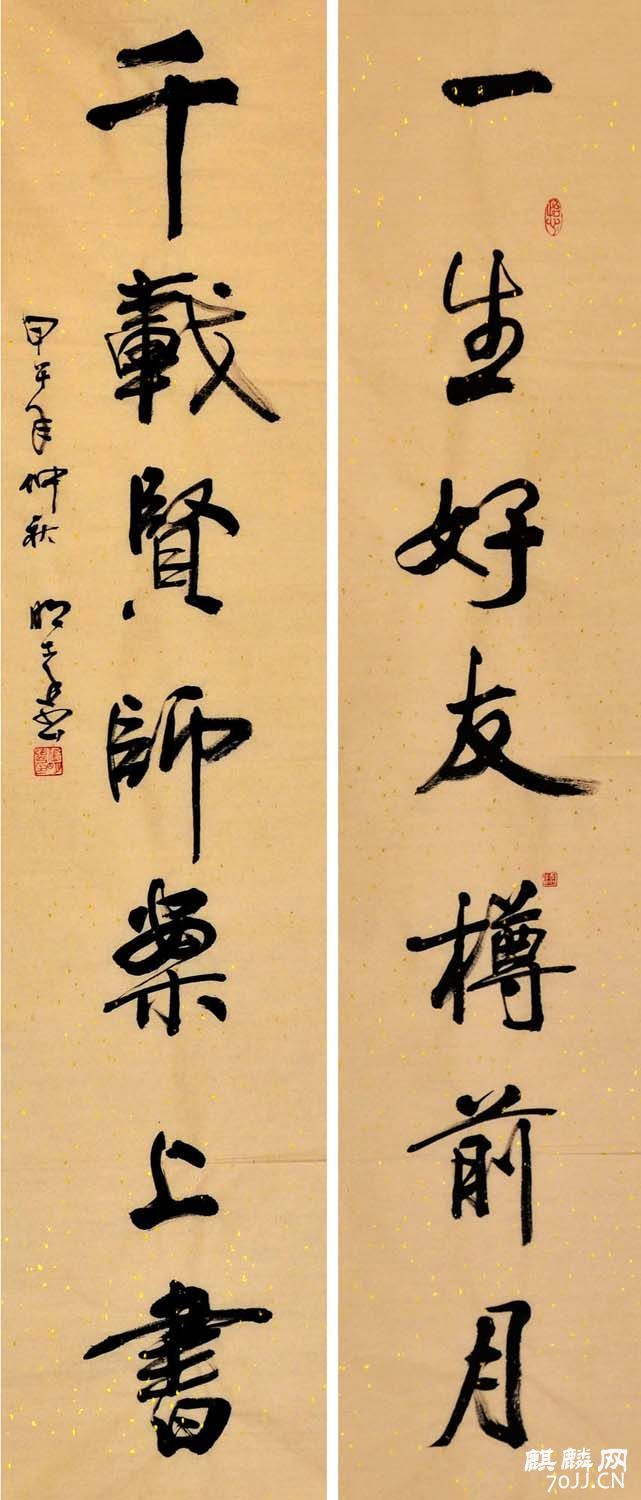 一生好友樽前月
千載賢師案上書
甲午年仲秋
麒麟网
70JJ.CN